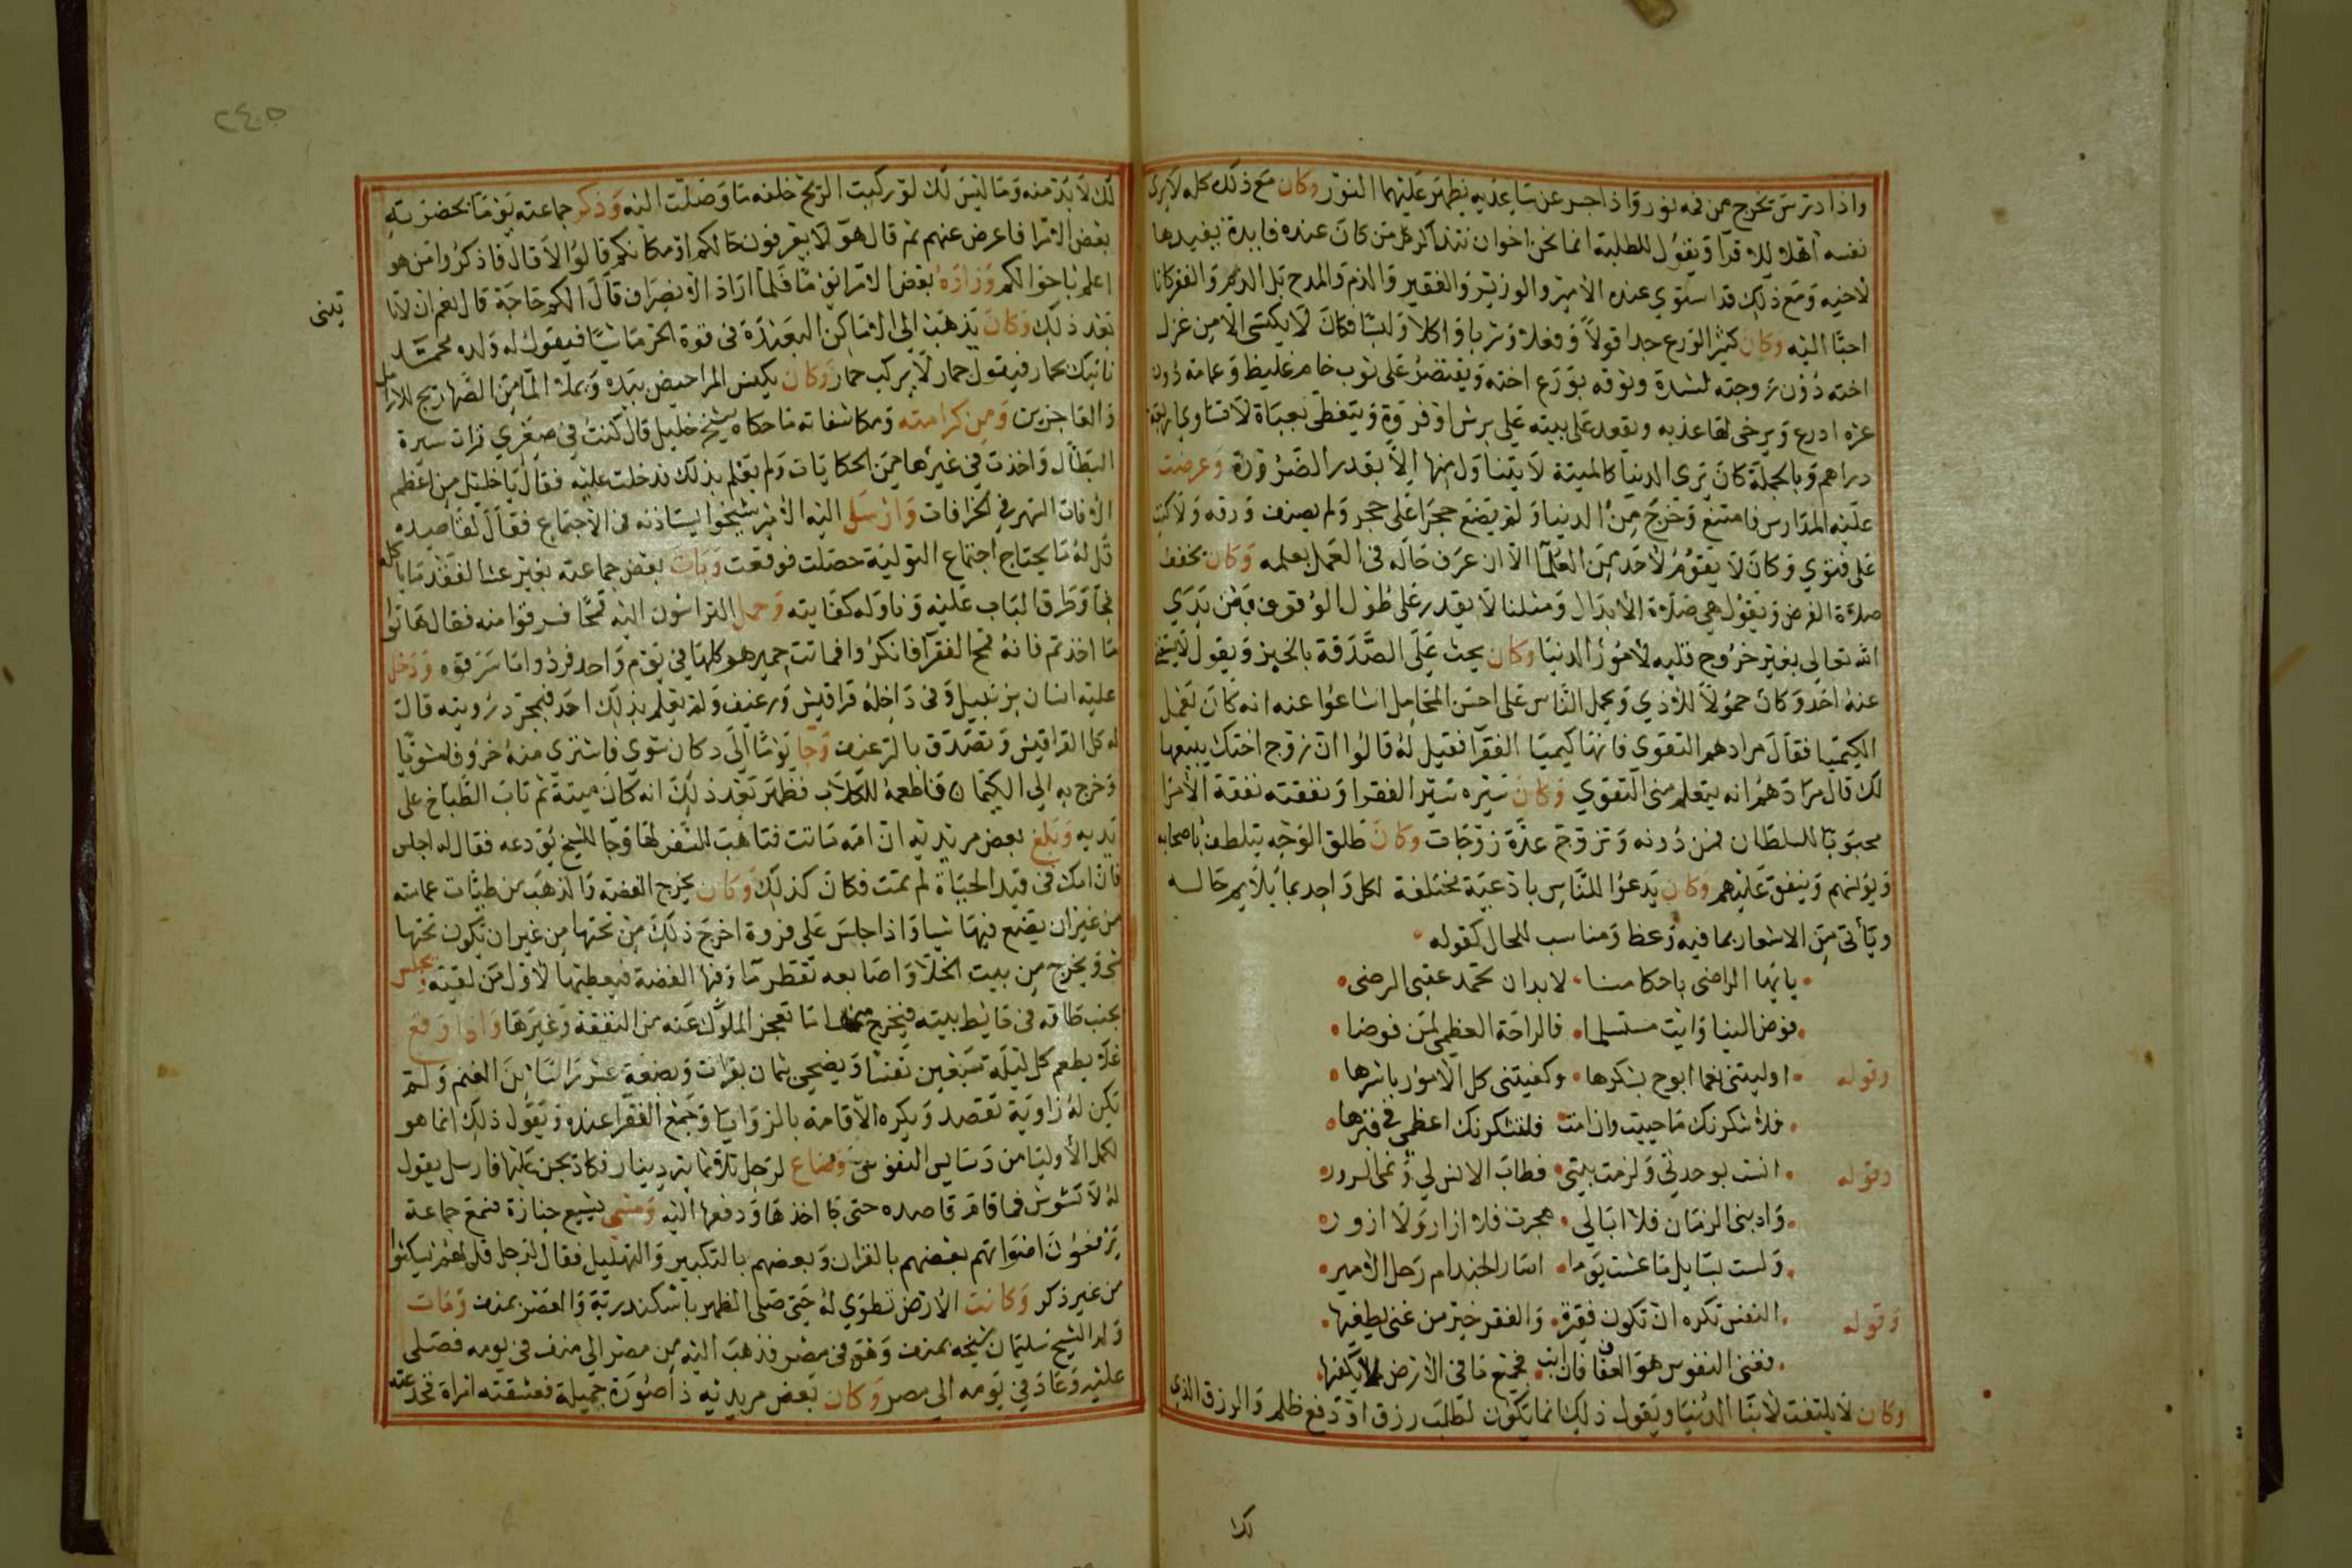 واذا درس يخرج من فمه نور واذا حسر عن ساعديه يظهر عليهما النور وكان مع ذلك كله لا يرى
نفسه اهلا للاقرا ويقول للطلبة انما نحن اخوان نتذاكر كل من كان عنده فايدة يفيدها
لاخيه ومع ذلك قد استوي عنده الامير والوزير والفقير والذم والمدح بل الدهر والفقر كانا
احبا اليه وكان كثير الورع جدا قولا وفعلا وشربا واكلا ولبسا فكان لا يكتسى الا من غزل
اخته دون زوجته لشدة وثوقه بورع اخته ويقتصر على ثوب خام غليظ وعمامة دون
عشرة ادرع ويرخى لها عذبه ويقعد على بيته على برش او فروة ويتغطى بعباة لا تساوي اربعة
دراهم وبالجملة كان يرى الدنيا كالميتة لا يتناول منها الا بقدر الضرورة وعرضت
عليه المدارس فامتنع وخرج من الدنيا ولم يضع حجرا على حجر ولم يصنف ورقه ولا كتب
على فتوي وكان لا يقوم لاحد من العلما الا ان عرف حاله فى العمل بعلمه وكان يخفف
صلاة الفرض ويقول هي صلاة الابدال ومثلنا لا يقدر على طول الوقوف بين يدي
الله تعالى بغير خروج قلبه لامور الدنيا وكان يحث على الصدقة بالخبز ويقول لا يستغنى
عنه احد وكان حمولا للاذي ويحمل الناس على احسن المحامل اشاعوا عنه انه كان يعمل
الكيميا فقال مرادهم التقوى فانها كيميا الفقرا فقيل له قالوا ان زوج اختك يبيعها
لك قال مرادهم انه يتعلم منى التقوي وكان سيره سير الفقرا ونفقته نفقة الامرا
محبوبا للسلطان فمن دونه وتزوج عدة زوجات وكان طلق الوجه يتلطف باصحابه
ويؤنسهم وينفق عليهم وكان يدعوا للناس بادعية مختلفة لكل واحد بما يلايم حاله
وياتى من الاشعار بما فيه وعظ ومناسب للحال كقوله
يا ايها الراضى باحكامنا لا بد ان تحمد عقبى الرضى
فوض الينا وابق مستسلما فالراحة العظمى لمن فوضا
وقوله اوليتنى نعما ابوح بشكرها وكفيتنى كل الامور باسرها
فلاشكرنك ما حييت وان امت فلتشكرنك اعظمي فى قبرها
وقوله انست بوحدتي ولزمت بيتى فطاب الانس لي ونمى السرور
وادبنى الزمان فلا ابالي هجرت فلا ازار ولا ازور
ولست بسايل ما عشت يوما اسار الجند ام رحل الامير
وقوله النفس تكره ان تكون فقيرة والفقر خير من غنى يطغيها
فغنى النفوس هو العفاف فان ابت فجميع ما فى الارض لا يكفيها
وكان لا يلتفت لابنا الدنيا ويقول ذلك انما يكون لطلب رزق او دفع ظلم والرزق الذي
لك
٢٤٠٥
لك لا بد منه وما ليس لك لو ركبت الريح خلفه ما وصلت اليه وذكر جماعته يوما بحضرته
بعض الامرا فاعرض عنهم ثم قال هو لا يعرفون حالكم او مكانكم قالوا لا قال فاذكروا من هو
اعلم باحوالكم وزاره بعض الامرا يوما فلما اراد الانصراف قال الكم حاجة قال نعم ان لا تاتيني
بعد ذلك وكان يذهب الى الاماكن البعيدة فى قوة الحر ماشيا فيقول له ولده محمد
ناتيك بحمار فيقول حمار لا يركب حمار وكان يكنس المراحيض بيده ويملا الما من الصهاريج للارامل
والعاجزين ومن كرامته ومكاشفاته ما حكاه شيخ خليل قال كنت في صغري قرات سيرة
البطال واخذت في غيرها من الحكايات ولم يعلم بذلك فدخلت عليه فقال يا خليل من اعظم
الافات السهر في الخرافات وارسل اليه الامير شيخوا يستاذنه فى الاجتماع فقال لقاصده
قل له ما يحتاج اجتماع التولية حصلت فوقعت وبات بعض جماعته بغير عشا لفقد ما ياكله
فجا وطرق الباب عليه وناوله كفايته وحمل التراسون اليه قمحا فسرقوا منه فقال هاتوا
ما اخذتم فانه قمح الفقرا فانكروا فماتت حميرهم كلها في يوم واحد فردوا ما سرقوه ودخل
عليه انسان بزنبيل وفى داخله قراقيش ورغيف ولم يعلم بذلك احد فبمجرد رويته قال
له كل القراقيش وتصدق بالرغيف وجا يوما الى دكان شوي فاشترى منه خروفا مشويا
وخرج به الي الكيمان فاطعمه للكلاب فظهر بعد ذلك انه كان ميتة ثم تاب الطباخ على
يديه وبلغ بعض مريديه ان امه ماتت فتاهب للسفر لها وجا للشيخ يودعه فقال له اجلس
فان امك فى قيد الحياة لم تمت فكان كذلك وكان يخرج الفضة والذهب من طيات عمامته
من غير ان يضع فيها شيا واذا جلس على فروة اخرج ذلك من تحتها من غير ان يكون تحتها
شى ويخرج من بيت الخلا واصابعه تقطر ما وفيها الفضة فيعطيها لاول من لقيه ويجلس
بجنب طاقه فى حايط بيته فيخرج منها ما تعجز الملوك عنه من النفقة وغيرها واذا وقع
غلا يطعم كل ليلة سبعين نفسا ويضحي بثمان بقرات وبضعة عشر راسا من الغنم ولم
تكن له زاوية تقصد ويكره الاقامة بالزوايا وجمع الفقرا عنده ويقول ذلك انما هو
لكمل الاوليا من دسايس النفوس وضاع لرجل ثلاثماية دينار فكاد يجن عليها فارسل يقول
له لا تشوش فما قام قاصده حتى جا اخذها ودفعها اليه ومشى يشيع جنازة فسمع جماعة
يرفعون اصواتهم بعضهم بالقران وبعضهم بالتكبير والتهليل فقال لرجل قل لهم يسكتوا
من غير ذكر وكانت الارض تطوي له حتى صلى الظهر باسكندرية والعصر بمنف ومات
ولد الشيخ سليمان شيخه بمنف وهو فى مصر فذهب اليه من مصر الى منف فى يومه فصلى
عليه وعاد في يومه الي مصر وكان بعض مريديه ذا صورة جميلة فعشقته امراة فخدعته